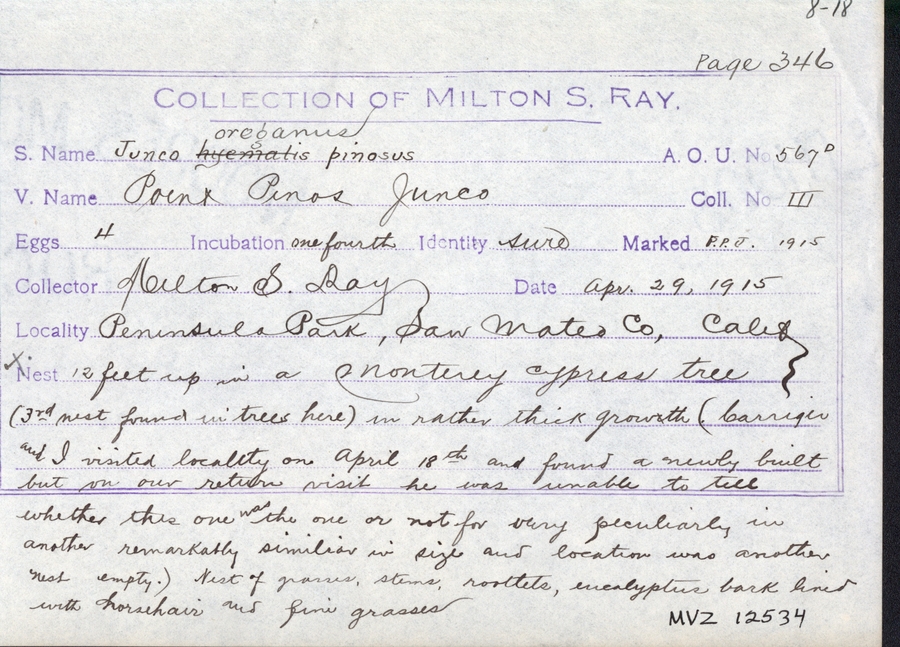 8-18
Page 346
COLLECTION OF MILTON S. RAY.
oreganus
S. Name Junco hyematis pinosus A. O. U. No 567D
V. Name Point Pinos Junco Coll. No III
Eggs 4 Incubation one fourth Identity sure Marked P.P.J. 1915
Collector Milton S. Ray Date Apr. 29, 1915
Locality Peninsula Park, San Mateo Co, Calif
x. Nest 12 feet up in a Monterey cypress tree }
(3rd nest found in trees here) in rather thick growth (Carriger
and I visited locality on April 18th and found a newly built
but on our return visit he was unable to tell
whether this one was the one or not for very peculiarly in
another remarkably similiar in size and location was another
nest empty.) Nest of grasses, stems, rootlets, eucalyptus bark lined
with horsehair and fine grasses
MVZ 12534